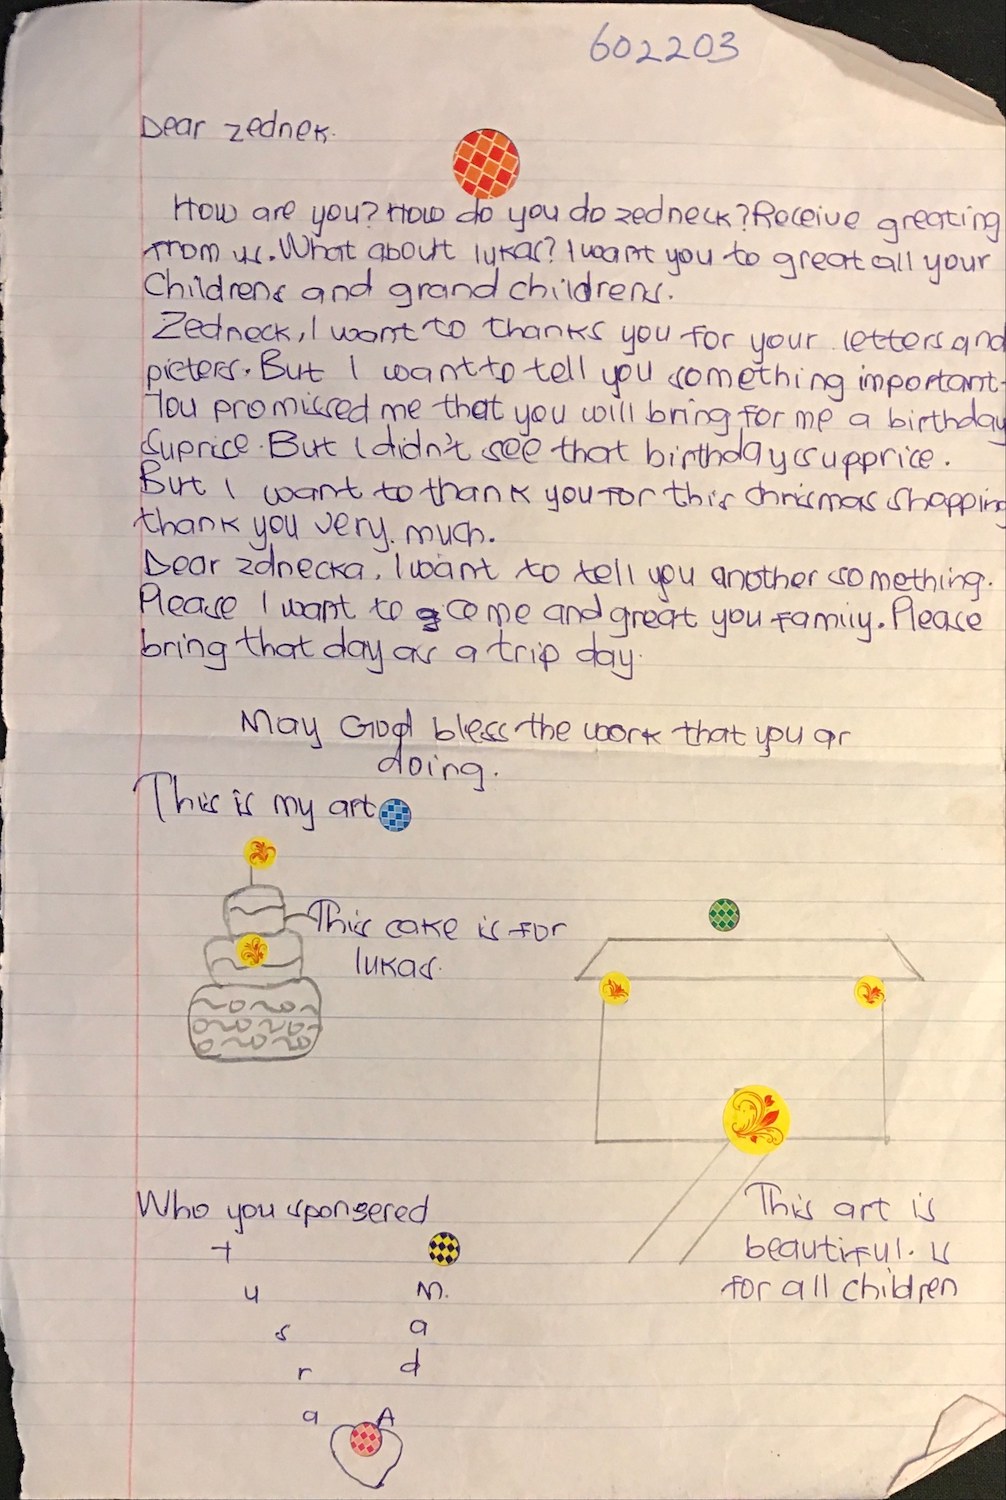 602203
Dear zednek.
How are you? How do you do zedneck? Receive greating
from us. What about lukas? I want you to great all your
Childrens and grand childrens.
Zedneck, I want to thanks you for your letters and
picters. But I want to tell you something important.
You promissed me that you will bring for me a birthday
suprice. But I didn't see that birthday supprice.
But I want to thank you for this chrismas shopping
thank you very. much.
Dear zdnecka, I want to tell you another something.
Please I want to come and great you family. Please
bring that day as a trip day.
May God bless the work that you ar
doing.
This is my art
This cake is for
lukas.
Who you sponsered
This art is
beautiful. is
for all children
T
u
s
r
a
M.
a
d
A